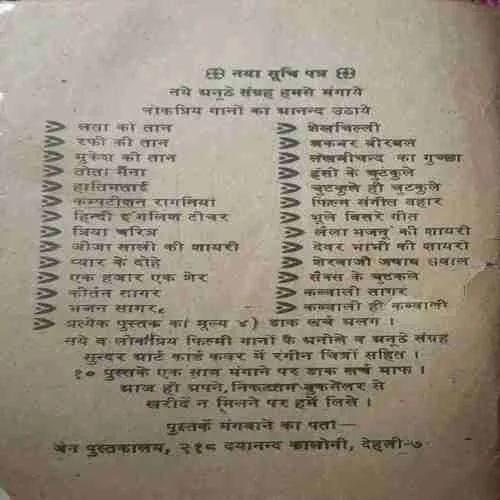 नया सूचि पत्र
नये अनूठे संग्रह हमसे मंगाये
लोकप्रिय गानों का आनन्द उठाये
लता की तान
रफी की तान
मुकेश की तान
तोता मैना
हातिमताई
कम्पटीशन रागनियां
हिन्दी इंगलिश टीचर
त्रिया चरित्र
जीजा साली की शायरी
प्यार के दोहे
एक हजार एक शेर
कीर्तन सागर
भजन सागर
शेखचिल्ली
अकबर बीरबल
लखमीचन्द का गुच्छा
हंसी के चुटकुले
चुटकुले ही चुटकुले
फिल्म संगीत बहार
भूले बिसरे गीत
लैला मजनू की शायरी
देवर भाभी की शायरी
शेरबाजी जवाब सवाल
सैक्स के चुटकले
कव्वाली सागर
कव्वाली ही कव्वाली
प्रत्येक पुस्तक का मूल्य ४) डाक खर्च अलग ।
नये व लोकप्रिय फिल्मी गानों के अनोखे व अनूठे संग्रह
सुन्दर आर्ट कार्ड कवर में रंगीन चित्रों सहित ।
१० पुस्तकें एक साथ मंगाने पर डाक खर्च माफ ।
आज ही अपने निकटतम बुकसेलर से
खरीदें न मिलने पर हमें लिखें ।
पुस्तकें मंगवाने का पता—
जैन पुस्तकालय, २१८ दयानन्द कालोनी, देहली-७